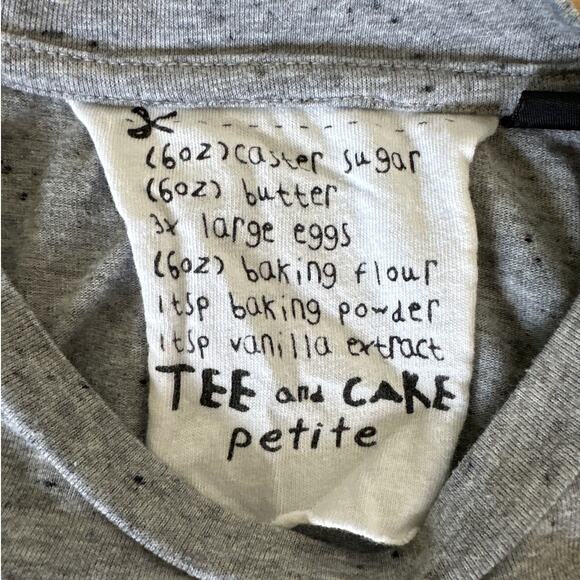 (6oz) caster sugar
(6oz) butter
3x large eggs
(6oz) baking flour
1tsp baking powder
1tsp vanilla extract
TEE and CAKE
petite